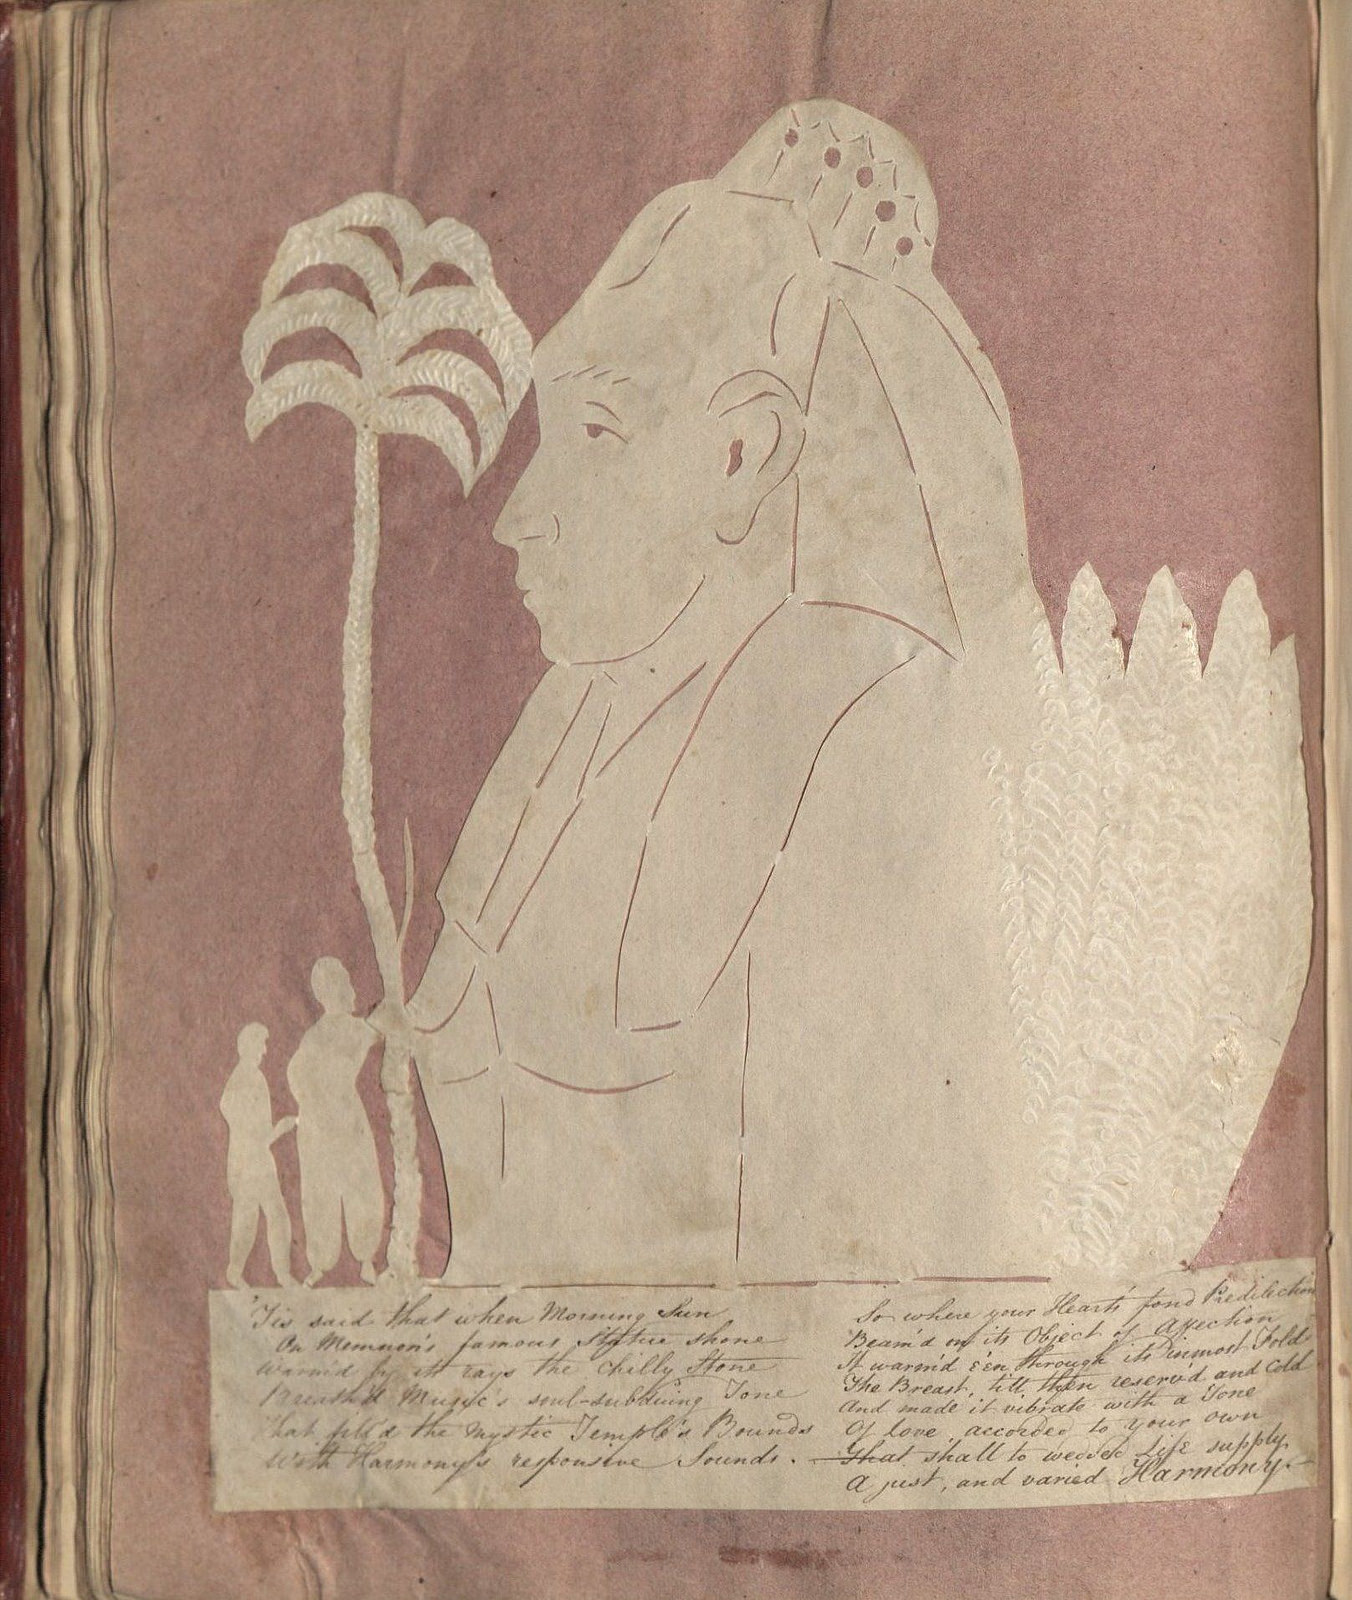 'Tis said that when Morning Sun
On Memnon's famous Statue shone
Warm'd by its rays the chilly Stone
Breath'd Music's soul-subduing Tone
That fill'd the Mystic Temple's Bounds
With Harmony's responsive Sounds. —
So where your Hearts' fond Predilection
Beam'd on its Object of Affection
It warm'd e'en through its inmost Fold
The Breast, till then reserv'd and cold
And made it vibrate with a Tone
Of love, accorded to your own
That shall to wedded Life supply
A just, and varied Harmony. —